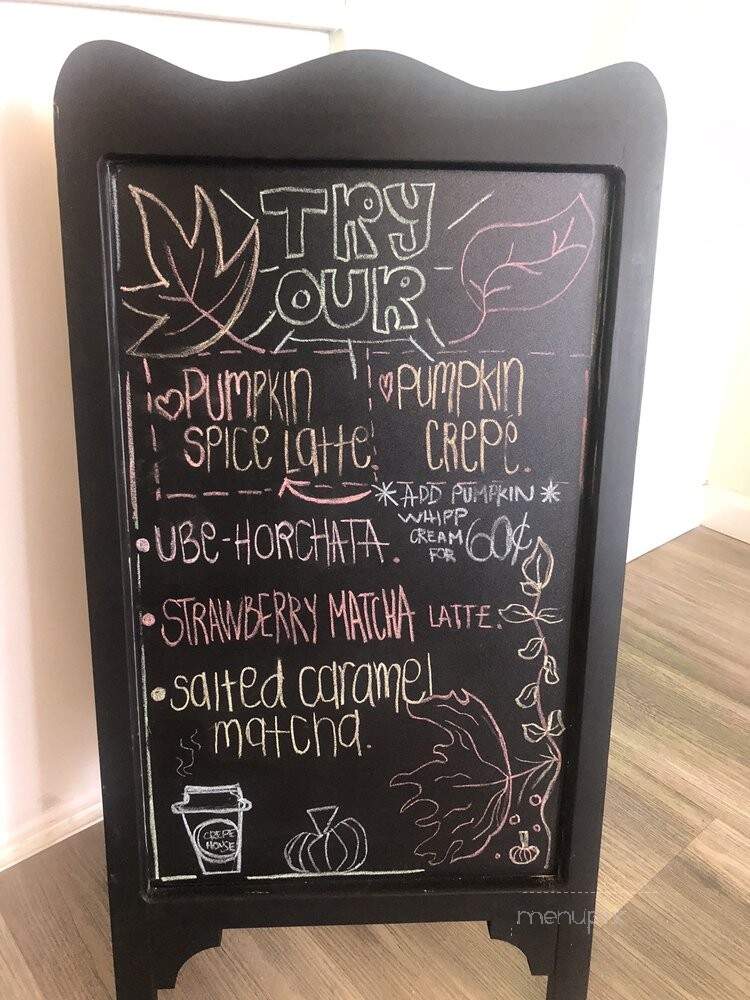 TRY
OUR
PUMPKIN
SPICE Latte.
PUMPKIN
CREPÉ.
*ADD PUMPKIN*
WHIPP
CREAM
FOR 60¢
UBE-HORCHATA.
STRAWBERRY MATCHA LATTE.
salted caramel
matcha.
CREPE
HOUSE